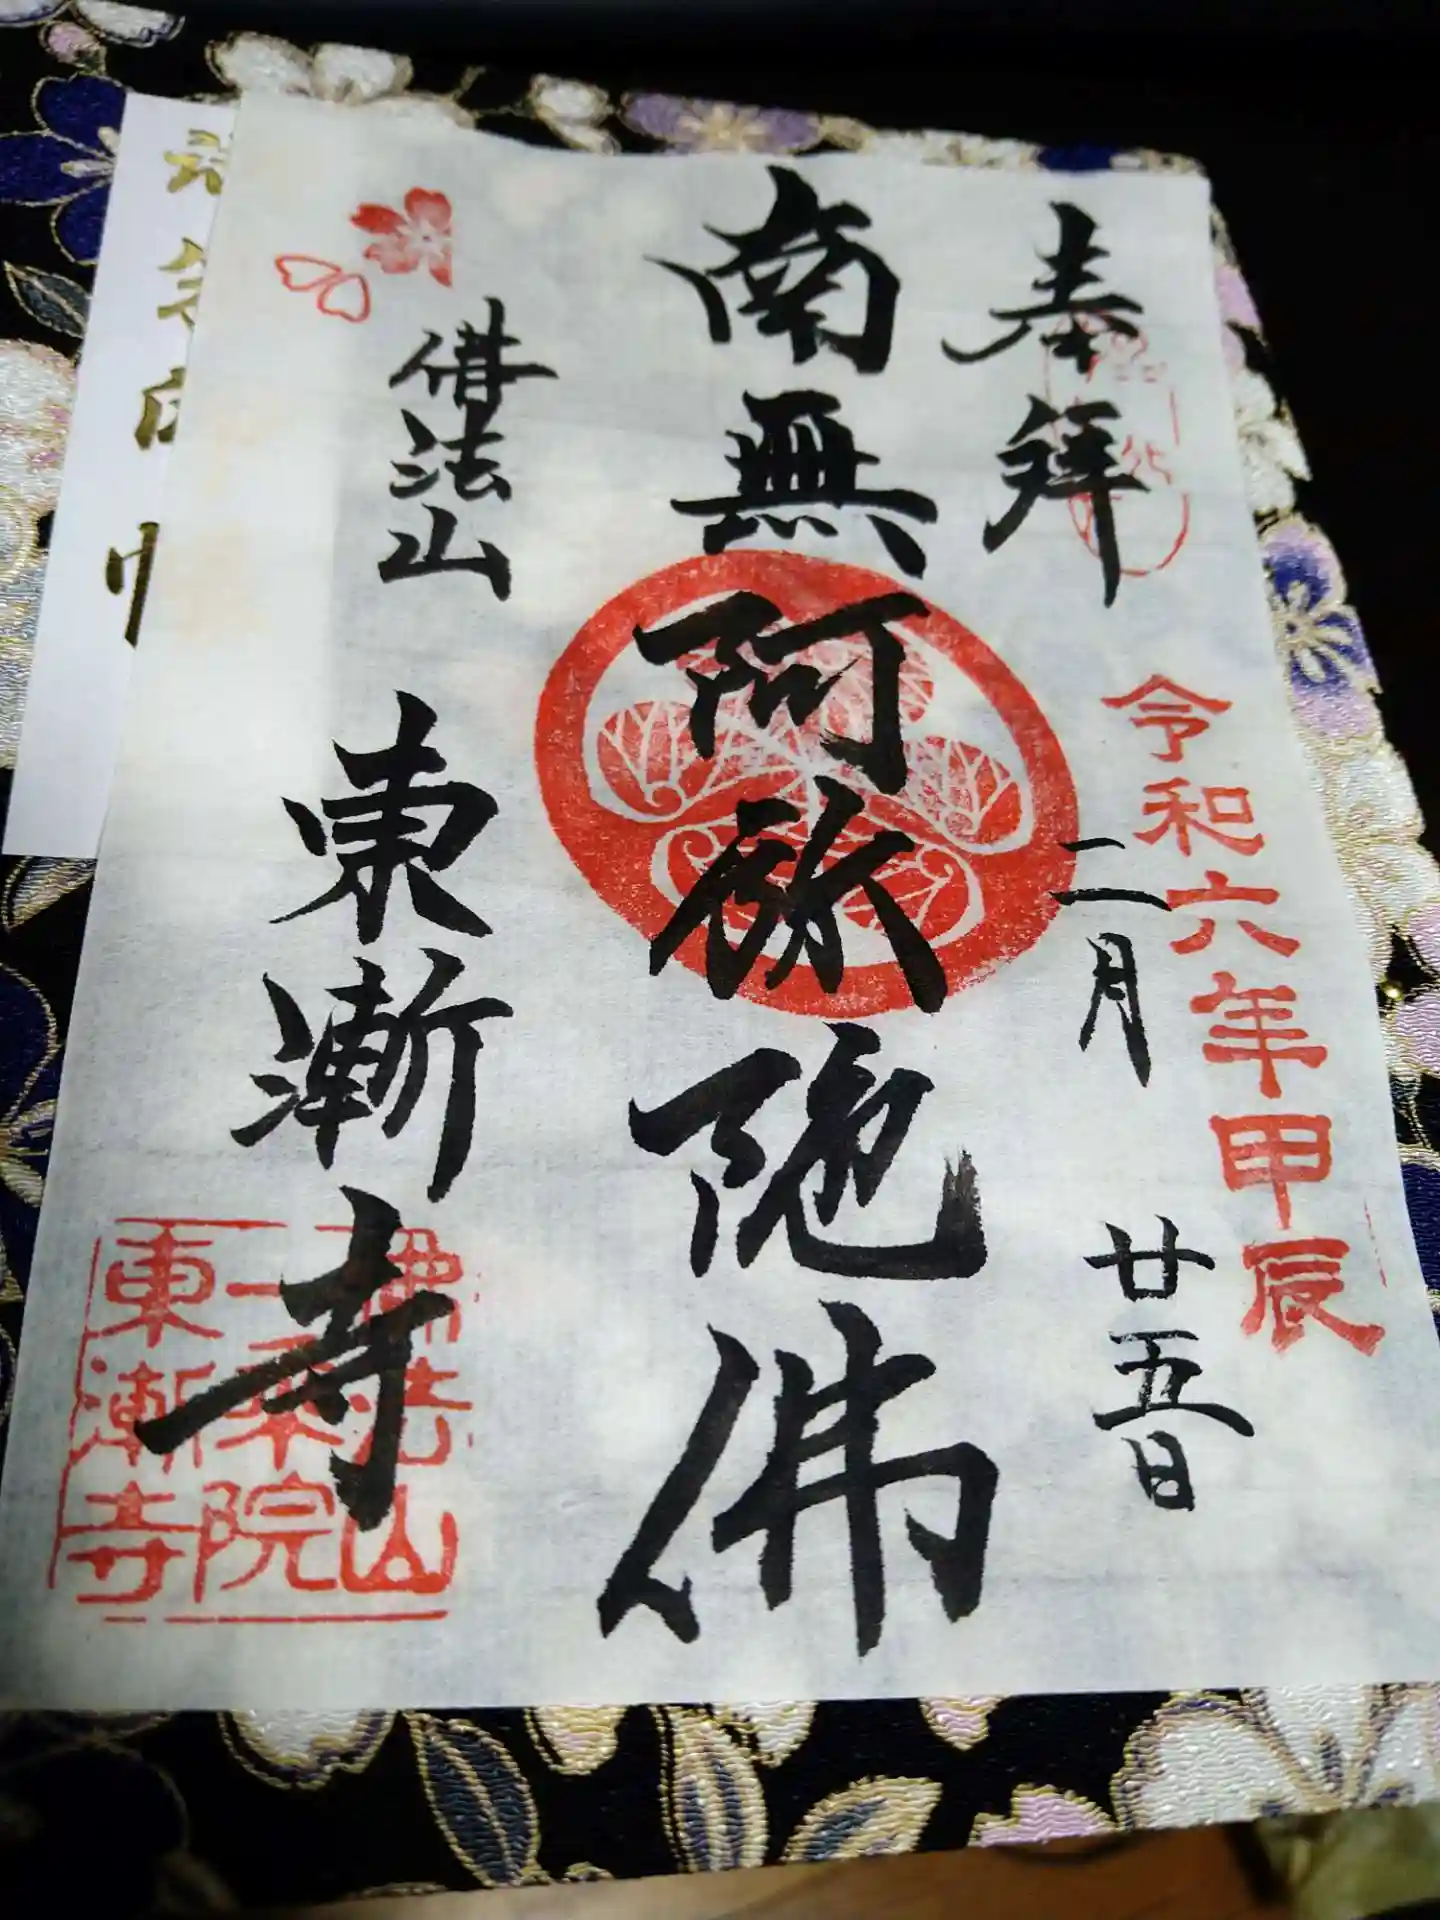 奉拝
令和六年甲辰
二月
廿五日
南無阿弥陀佛
佛法山
東漸寺
佛法山
一乗院
東漸寺